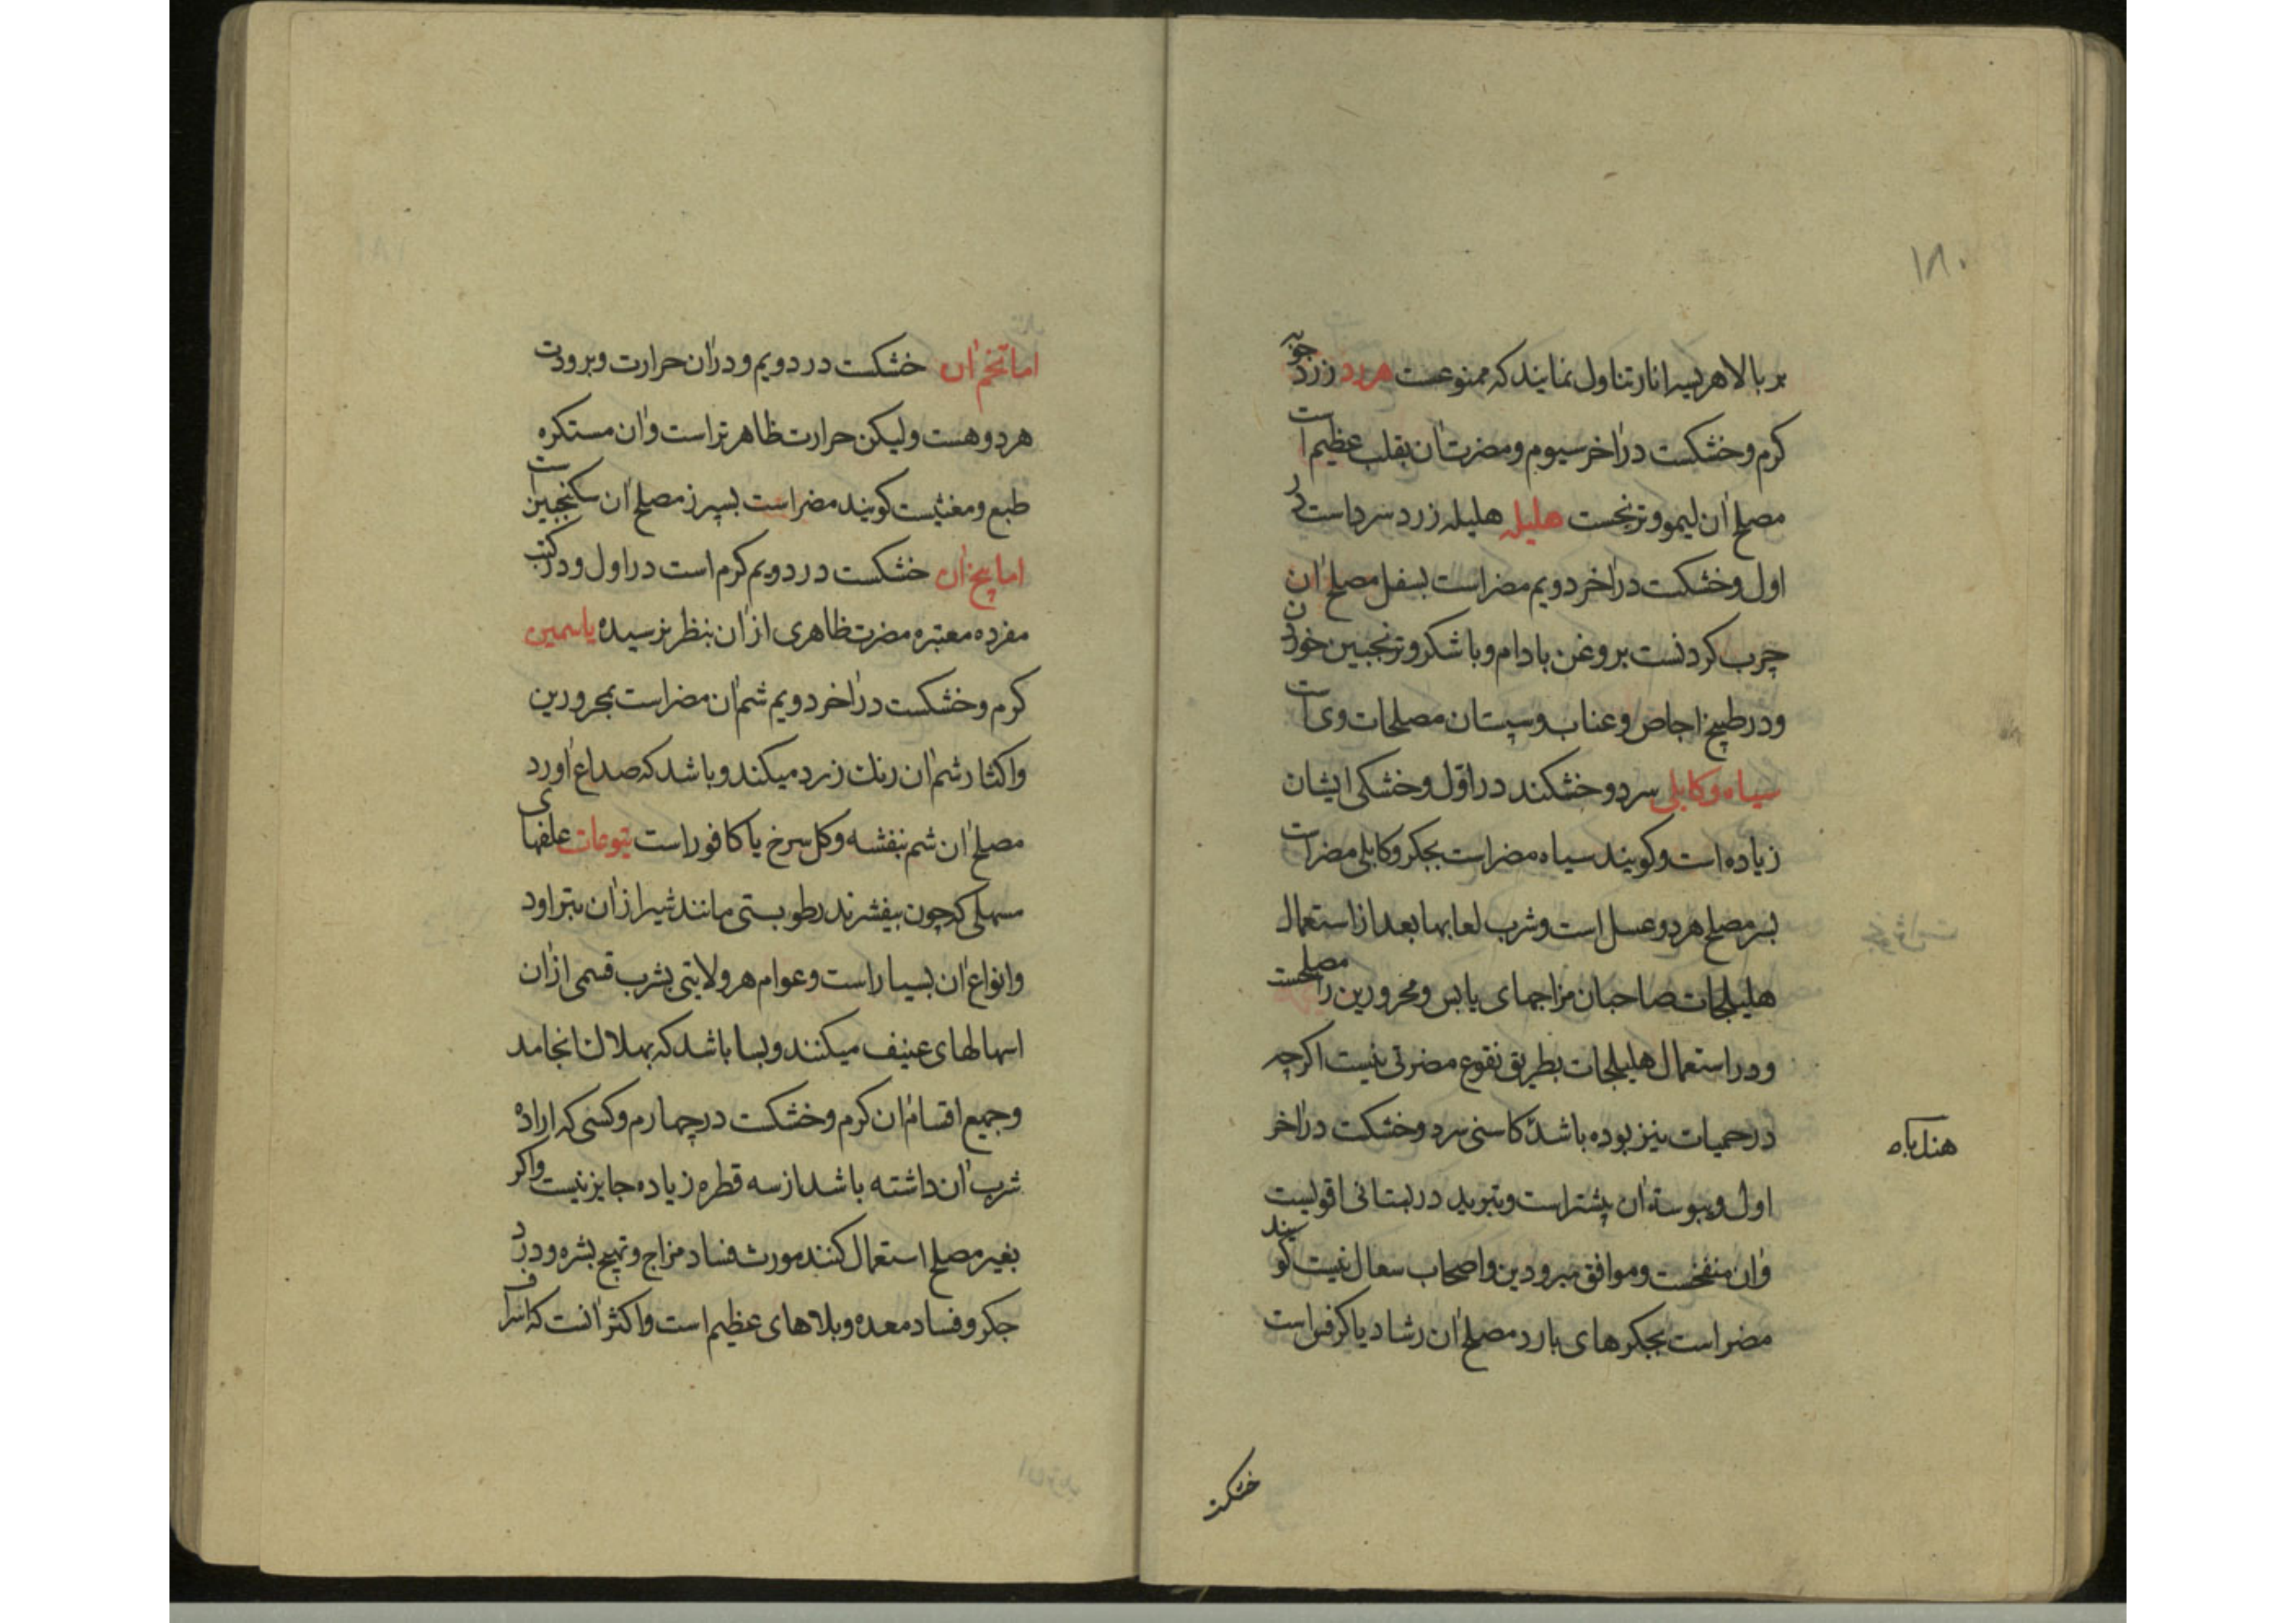 ۱۸۰
بر بالا هریسه انار تناول نمایند که ممنوعست هرد زردجوبه
کرم و خشکست در آخر سیوم و مضرت آن بقلب عظیم است
مصلح آن لیمو و ترنجست هلیله هلیله زرد سرد است در
اول و خشکست در آخر دویم مضر است بسفل مصلح آن
چرب کردنست بروغن بادام و با شکر و ترنجبین خوردن
و در طبیخ اجاص و عناب و سپستان مصلحات وی است
سیاه و کابلی سرد و خشکند در اول و خشکی ایشان
زیاده است و کویند سیاه مضر است بجکر و کابلی مضر است
بسر مصلح هر دو عسل است و شرب لعابها بعد از استعمال
هلیلجات صاحبان مزاجهای یابس و محرورین را مصلحست
و در استعمال هلیلجات بطریق نقوع مضرتی نیست اکرچه
در حمیات نیز بوده باشد کاسنی سرد و خشکست در آخر
هندباه
اول و یبوسة آن پیشتر است و تبرید در بستانی اقویست
و آن منفخست و موافق مبرودین و اصحاب سعال نیست کویند
مضر است بجکرهای بارد مصلح آن رشاد یا کرفس است
خشکست
اما تخم آن خشکست در دویم و در آن حرارت و برودت
هر دو هست ولیکن حرارت ظاهرتر است و آن مستکره
طبع و مغثیست کویند مضر است بسپرز مصلح آن سکنجبین است
اما بیخ آن خشکست در دویم کرم است در اول و در کتب
مفرده معتبره مضرت ظاهری از آن بنظر نرسیده یاسمین
کرم و خشکست در آخر دویم شم آن مضر است بمحرورین
و اکثار شم آن رنك زرد میکند و باشد که صداع آورد
مصلح آن شم بنفشه و کل سرخ یا کافور است یتوعات علفهای
مسهلی که چون بیفشرند رطوبتی مانند شیر از آن بتراود
و انواع آن بسیار است و عوام هر ولایتی بشرب قسمی از آن
اسهالهای عنیف میکنند و بسا باشد که بهلاك انجامد
و جمیع اقسام آن کرم و خشکست در چهارم و کسی که اراده
شرب آن داشته باشد از سه قطره زیاده جایز نیست و اکر
بغیر مصلح استعمال کنند مورث فساد مزاج و تهیج بشره و درد
جکر و فساد معده و بلاهای عظیم است و اکثر آنست که اسراف